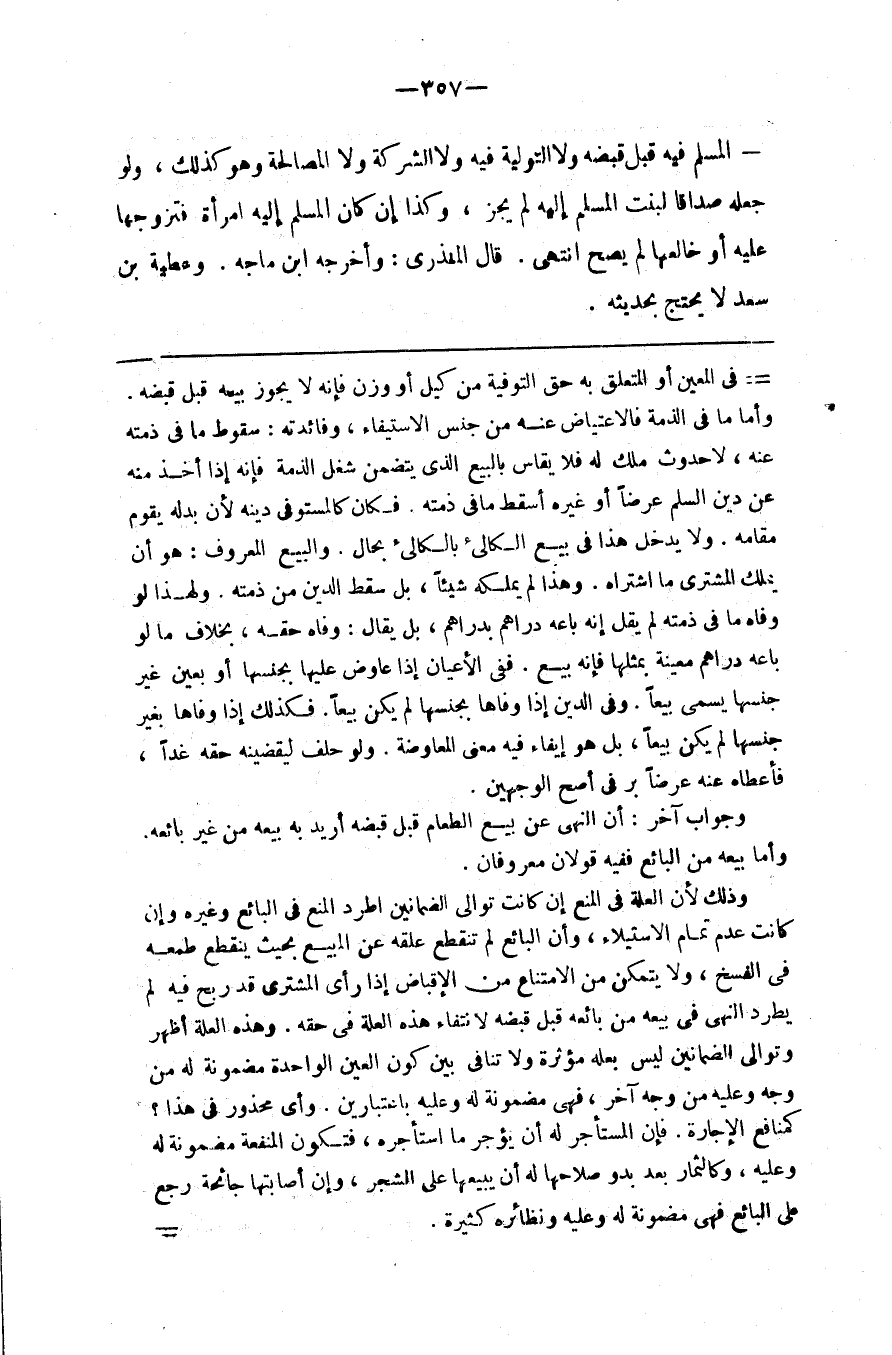 —٣٥٧—
— المسلم فيه قبل قبضه ولا التولية فيه ولا الشركة ولا المصالحة وهو كذلك ، ولو
جعله صداقا لبنت المسلم إليه لم يجز ، وكذا إن كان المسلم إليه امرأة فتزوجها
عليه أو خالعها لم يصح انتهى . قال المنذرى : وأخرجه ابن ماجه . وعطية بن
سعد لا يحتج بحديثه .
== فى المعين أو المتعلق به حق التوفية من كيل أو وزن فإنه لا يجوز بيعه قبل قبضه .
وأما ما فى الذمة فالاعتياض عنه من جنس الاستيفاء ، وفائدته : سقوط ما فى ذمته
عنه ، لا حدوث ملك له فلا يقاس بالبيع الذى يتضمن شغل الذمة فإنه إذا أخذ منه
عن دين السلم عرضاً أو غيره أسقط ما فى ذمته . فكان كالمستوفى دينه لأن بدله يقوم
مقامه . ولا يدخل هذا فى بيع الكالىء بالكالىء بحال . والبيع المعروف : هو أن
يملك المشترى ما اشتراه . وهذا لم يملكه شيئاً ، بل سقط الدين من ذمته . ولهذا لو
وفاه ما فى ذمته لم يقل إنه باعه دراهم بدراهم ، بل يقال : وفاه حقه ، بخلاف ما لو
باعه دراهم معينة بمثلها فإنه بيع . ففى الأعيان إذا عاوض عليها بجنسها أو بعين غير
جنسها يسمى بيعاً . وفى الدين إذا وفاها بجنسها لم يكن بيعاً . فكذلك إذا وفاها بغير
جنسها لم يكن بيعاً ، بل هو إيفاء فيه معنى المعاوضة . ولو حلف ليقضينه حقه غداً ،
فأعطاه عنه عرضاً بر فى أصح الوجهين .
وجواب آخر : أن النهى عن بيع الطعام قبل قبضه أريد به بيعه من غير بائعه.
وأما بيعه من البائع ففيه قولان معروفان .
وذلك لأن العلة فى المنع إن كانت توالى الضمانين اطرد المنع فى البائع وغيره وإن
كانت عدم تمام الاستيلاء ، وأن البائع لم تنقطع علقه عن المبيع بحيث ينقطع طمعه
فى الفسخ ، ولا يتمكن من الامتناع من الإقباض إذا رأى المشترى قد ربح فيه لم
يطرد النهى فى بيعه من بائعه قبل قبضه لانتفاء هذه العلة فى حقه . وهذه العلة أظهر
وتوالى الضمانين ليس بعله مؤثرة ولا تنافى بين كون العين الواحدة مضمونة له من
وجه وعليه من وجه آخر ، فهى مضمونة له وعليه باعتبارين . وأى محذور فى هذا ؟
كمنافع الإجارة . فإن المستأجر له أن يؤجر ما استأجره ، فتكون المنفعة مضمونة له
وعليه ، وكالثمار بعد بدو صلاحها له أن يبيعها على الشجر ، وإن أصابتها جائحة رجع
على البائع فهى مضمونة له وعليه ونظائره كثيرة .
==